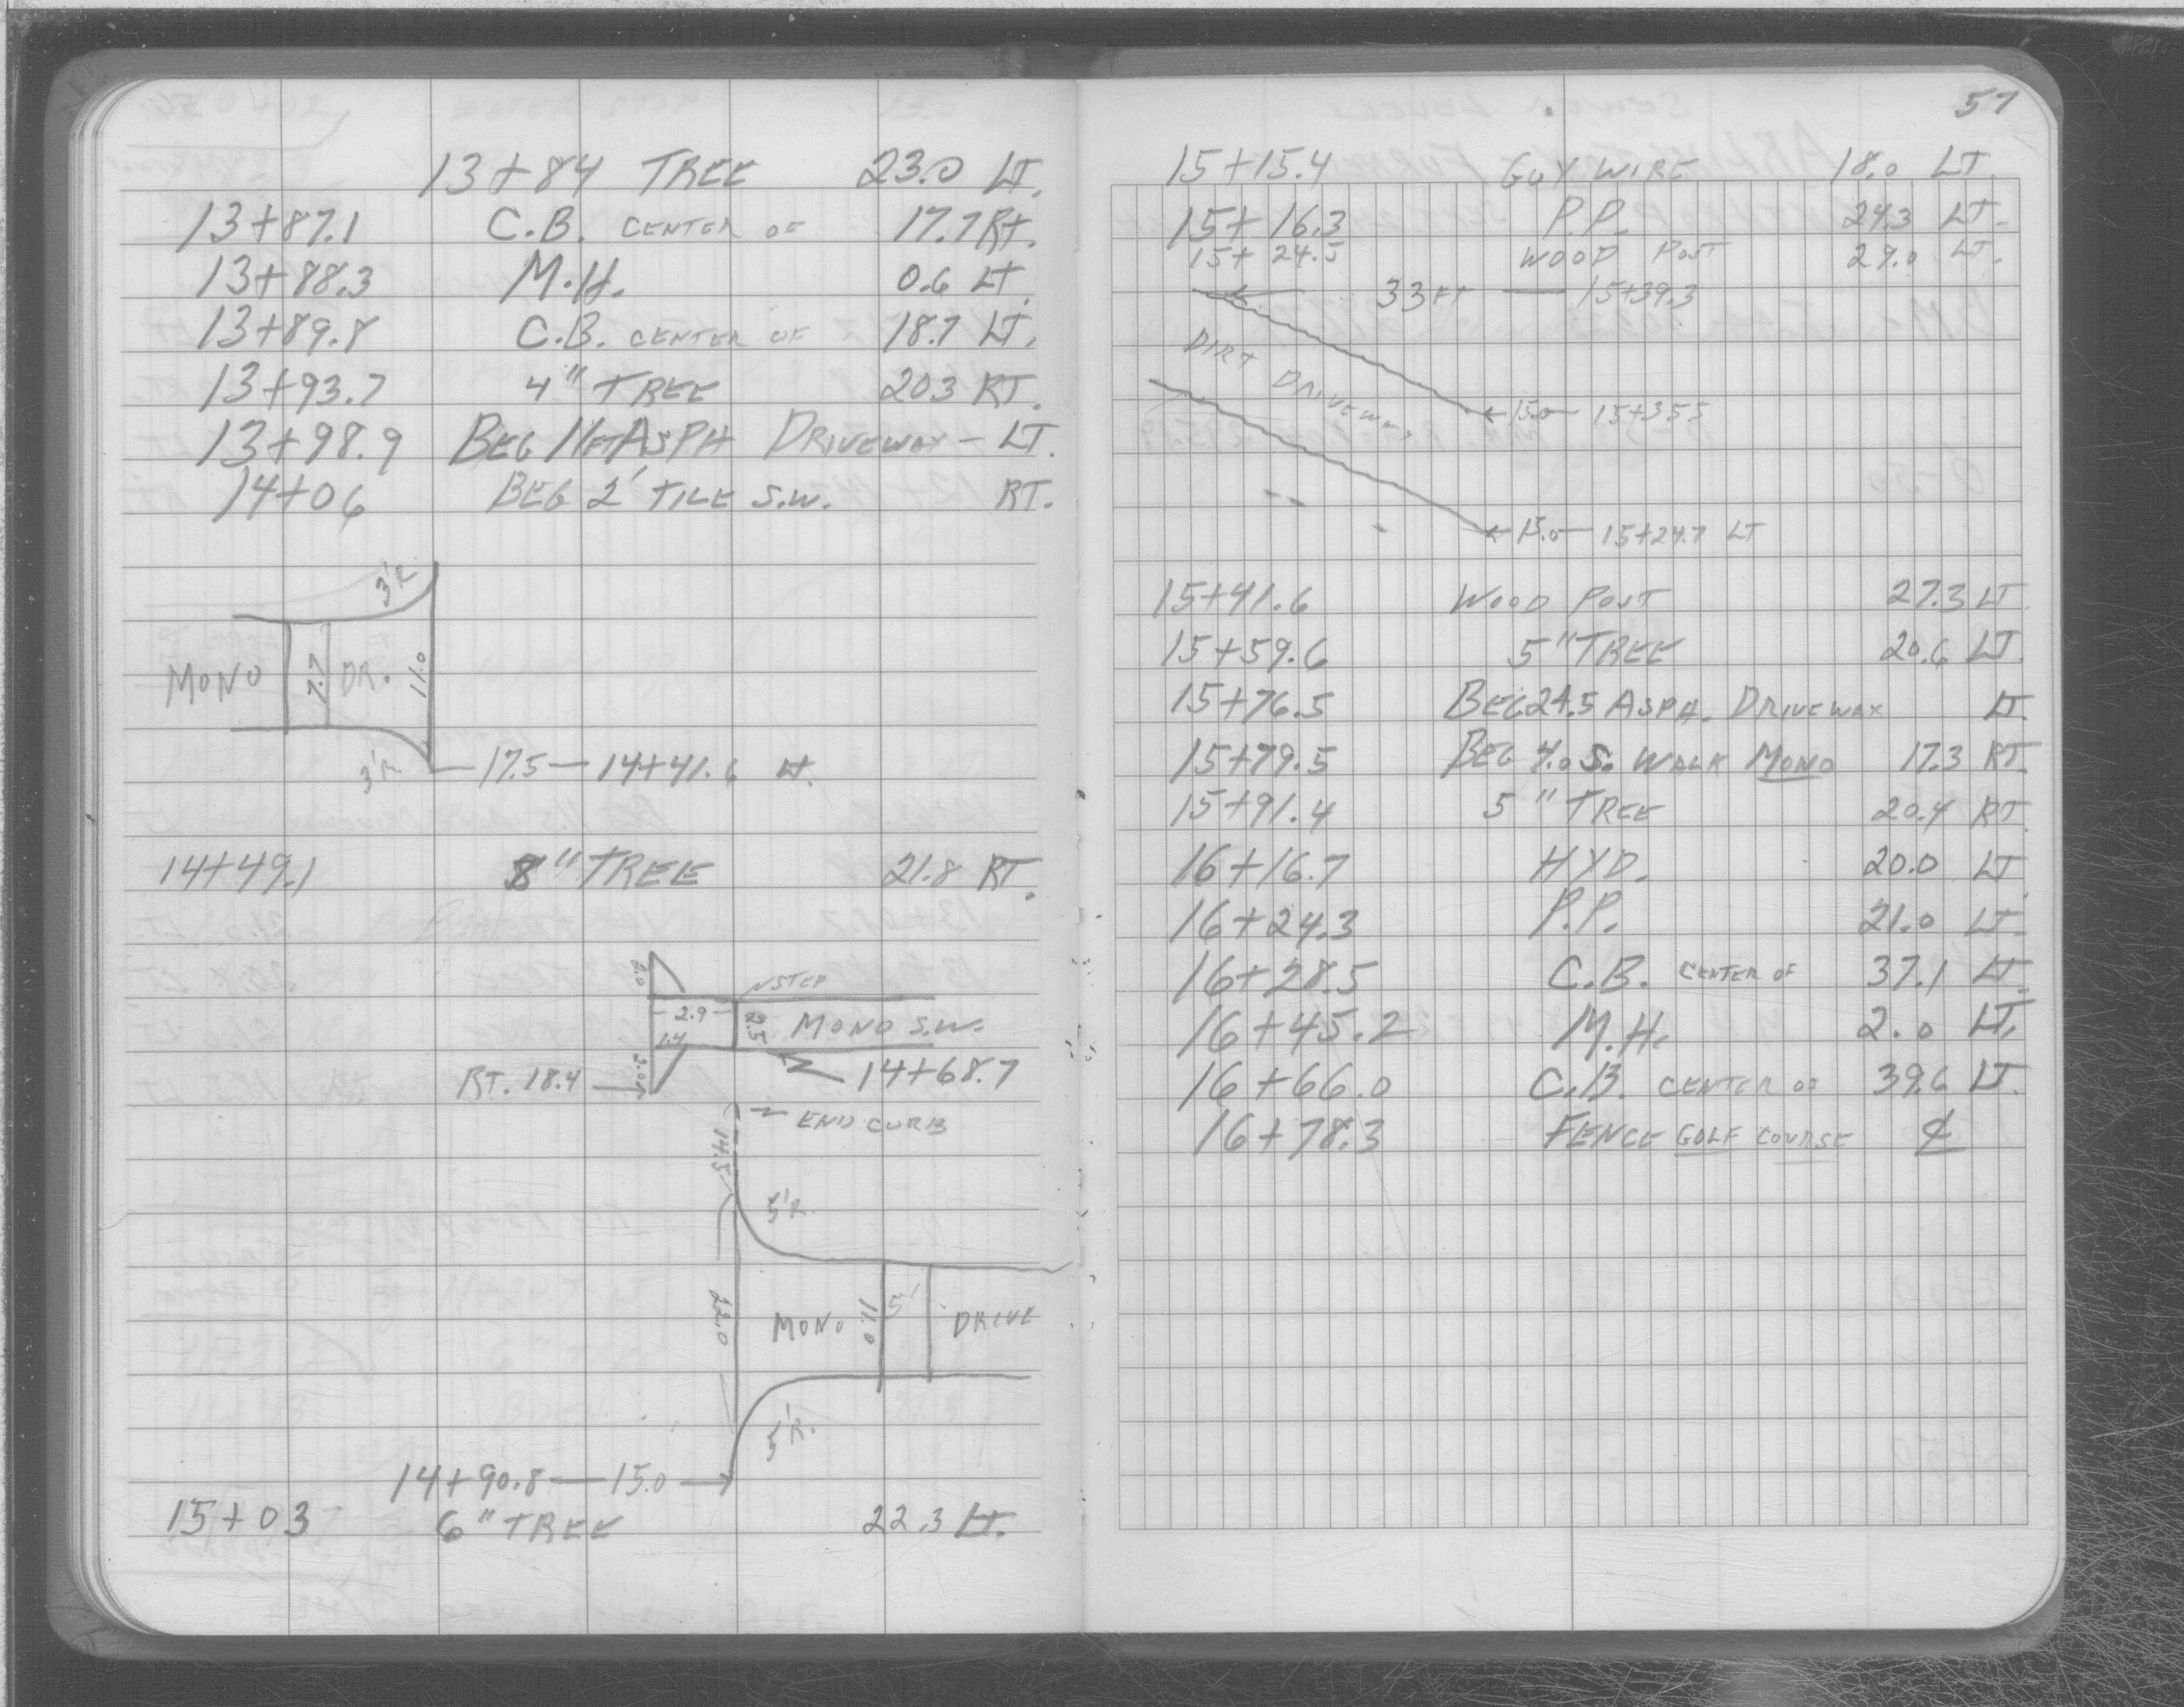 13+84 TREE 23.0 LT.
13+87.1 C.B. CENTER OF 17.7 Rt.
13+88.3 M.H. 0.6 LT.
13+89.8 C.B. CENTER OF 18.7 LT.
13+93.7 4" TREE 20.3 RT.
13+98.9 BEG 11FT ASPH DRIVEWAY - LT.
14+06 BEG 2' TILE S.W. RT.
3'R
MONO 7.7 DR. 11.0
3'R 17.5 — 14+41.6 LT.
14+49.1 8" TREE 21.8 RT.
2.0
STEP
2.9 2.5 MONO S.W.
1.4
RT. 18.4 2.0 14+68.7
END CURB
14.5
5'R.
22.0 MONO 11.0 5' DRIVE
5'R.
14+90.8 — 15.0
15+03 6" TREE 22.3 LT.
57
15+15.4 GUY WIRE 18.0 LT.
15+16.3 P.P. 24.3 LT.
15+24.5 WOOD POST 29.0 LT.
33 FT — 15+39.3
DIRT DRIVEWAY
15.0 — 15+35.5
15.0 — 15+24.7 LT
15+41.6 WOOD POST 27.3 LT.
15+59.6 5" TREE 20.6 LT.
15+76.5 BEG 24.5 ASPH. DRIVEWAY LT.
15+79.5 BEG 4.0 S. WALK MONO 17.3 RT.
15+91.4 5" TREE 20.4 RT.
16+16.7 HYD. 20.0 LT.
16+24.3 P.P. 21.0 LT.
16+28.5 C.B. CENTER OF 37.1 LT.
16+45.2 M.H. 2.0 LT.
16+66.0 C.B. CENTER OF 39.6 LT.
16+78.3 FENCE GOLF COURSE ℄